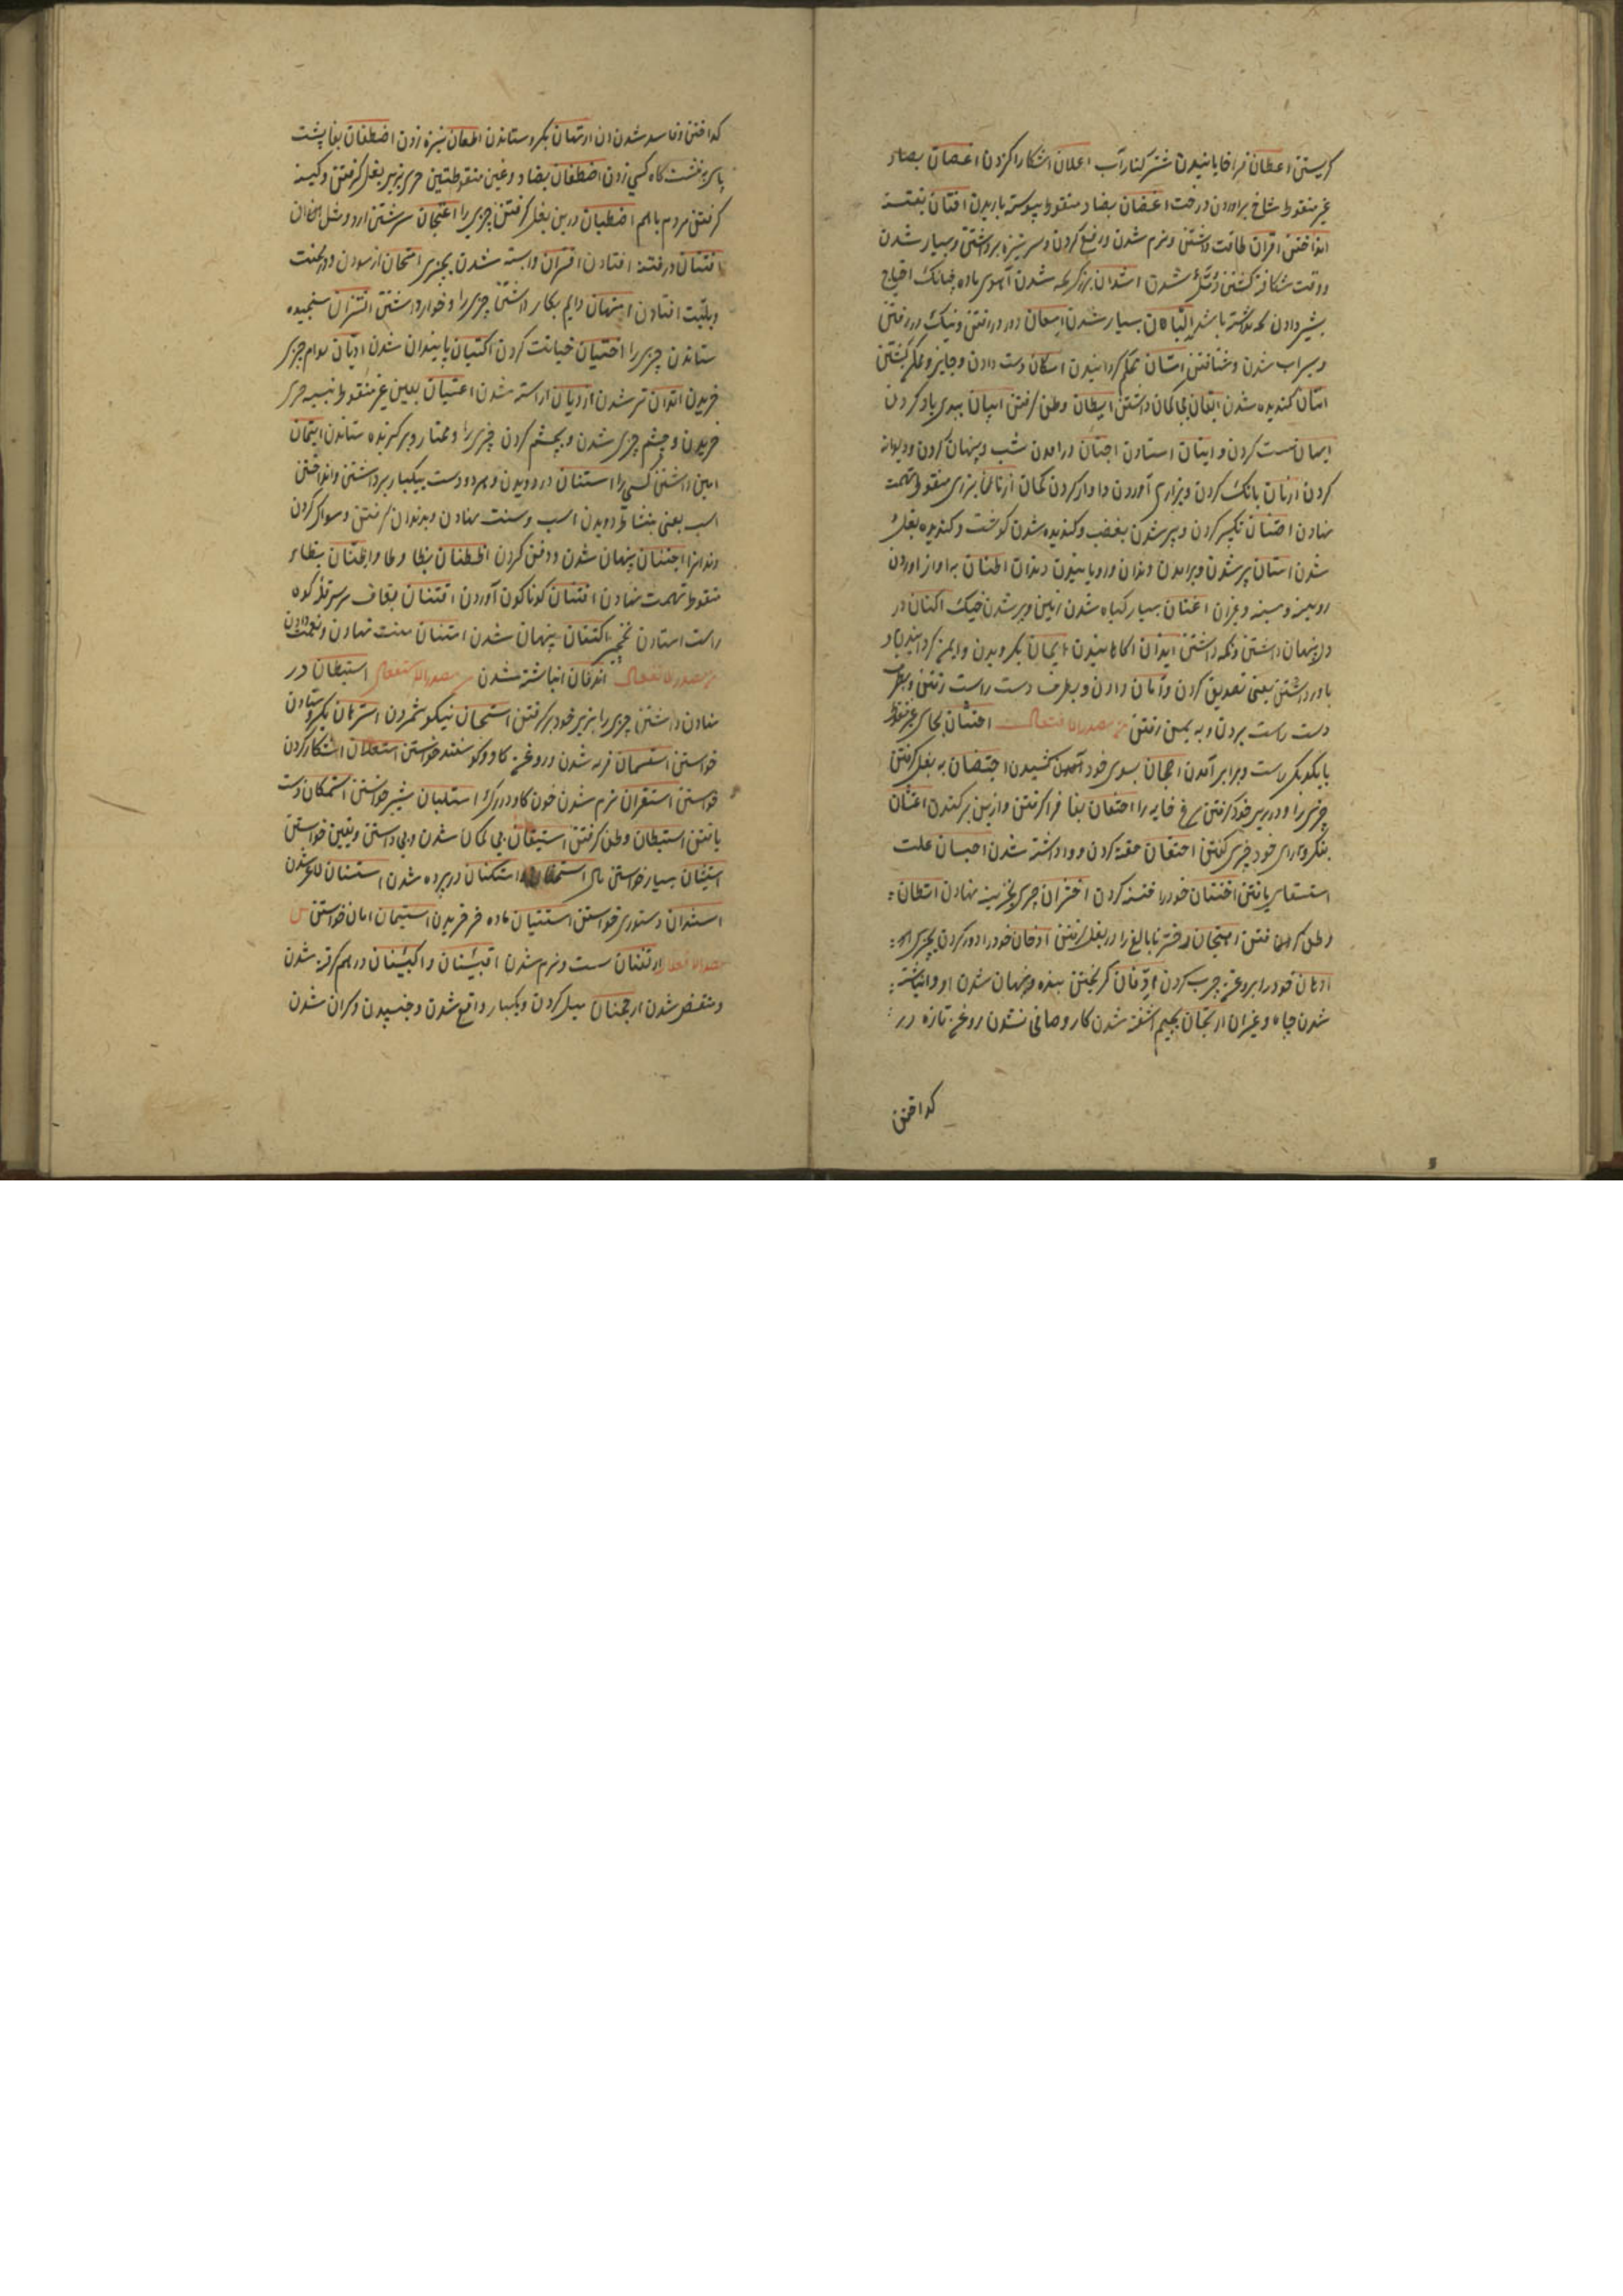 کریستن اعطان فرا خابانیدن شتر کنار آب اعلان اشکارا کردن اغصان بصاد
غیر منقوط شاخ براوردن درخت اغضان بضاد منقوط پیوسته باریدن افتان بفتنه
انداختن اقران طاقت داشتن و نرم شدن و رفع کردن و سر نیزه برداشتن و بسیار شدن
و وقت شکافته گشتن شدن اشدان بزرک شدن آهوی ماده چنانک احتیاج
بشیر دادن نداشته باشد البان بسیار شدن امعان دور در رفتن و نیک در رفتن
و سیراب شدن و شتافتن امتان محکم کردانیدن امکان دست دادن و جایز و ممکن گشتن
انتان گندیده شدن ایقان بی کمان داشتن ایطان وطن گرفتن ابیان ببدی یاد کردن
ایهان سست کردن و ایتان استادن اجنان در امدن شب و پنهان کردن و دیوانه
کردن ارنان بانک کردن و بزاری آوردن و اواز کردن کمان ازنان بزای منقوط تهمت
نهادن اصنان تکبر کردن و پر شدن بغضب و گندیده شدن گوشت و گندیده بغل
شدن اسنان پیر شدن و برامدن دندان و رویانیدن دندان اطنان به اواز اوردن
رویینه و مسینه و جز آن اغنان بسیار گیاه شدن زمین و پر شدن خیک اکنان در
دل پنهان داشتن و نگه داشتن ایذان اگاهانیدن ایمان بگرویدن و ایمن گردانیدن و
باور داشتن یعنی تصدیق کردن و امان دادن و بطرف دست راست رفتن و بطرف
دست راست بردن و به یمن رفتن مصدر الافتعال احتتان بحای غیر منقوط
با یکدیگر راست و برابر آمدن احجان بسوی خود کشیدن احتضان به بغل گرفتن
چیزی را و در زیر خود گرفتن مرغ خایه را احتفان بفا فرا گرفتن و از بن بر کندن اعتان
احتقان حقنه کردن و وا داشته شدن احبسان علت
استسقا یافتن افتتان خود را فتنه کردن اختزان چیزی بخزینه نهادن اتطان
وطن گرفتن اهتجان دختر نابالغ را در بغل گرفتن ادخان خود را دود کردن بچیزی
ادهان خود را بروغن چرب کردن ادفان گریختن بنده و پنهان شدن او و انباشته
شدن چاه و غیر آن ارتجان بجیم اشفته شدن کار و صافی نشدن روغن تازه در
کداختن
کداختن و فاسد شدن ان ارتهان بگرو ستاندن اطعان نیزه زدن اضطفان بفا پشت
پای بر نشستگاه کسی زدن اضطغان بضاد و غین منقوطتین چیزی بزیر بغل گرفتن و کینه
گرفتن مردم باهم اضطبان در بن بغل گرفتن چیزی را اعتجان سرشتن ارد و مثل ان
افتتان در فتنه افتادن اقتران وابسته شدن بچیزی امتحان ازمودن و در محنت
و بلیت افتادن امتهان دایم بکار داشتن چیزی را و خوار داشتن اتزان سنجیده
ستاندن چیزی را اختیان خیانت کردن اکتیان پایندان شدن ادیان بوام چیزی
خریدن اتدان تر شدن ازدیان اراسته شدن اعتیان بعین غیر منقوط بنسیه چیزی
خریدن و چشم چیزی شدن و بچشم کردن چیزی را و مختار و برگزیده ستاندن ایتمان
امین داشتن کسی را استنان در دویدن و هر دو دست بیکبار برداشتن و انداختن
اسب یعنی بنشاط دویدن اسب و سنت نهادن و بدندان گرفتن و مسواک کردن
دندانرا اجتنان پنهان شدن و دفن کردن اظطنان بظا و طا و اظتنان بظاء
منقوط تهمت نهادن افتنان گوناگون آوردن اقتنان بقاف بر سر قله کوه
راست استادن نخچیر اکتنان پنهان شدن امتنان منت نهادن و نعمت دادن
مصدر الانفعال اندفان انباشته شدن مصدر الاستفعال استبطان در
نهادن داشتن چیزی را بزیر خود گرفتن استحسان نیکو شمردن استرهان بگرو ستادن
خواستن استسمان فربه شدن و روغن گاو و گوسفند خواستن استعلان اشکارا کردن
خواستن استقران نرم شدن خون گاو در رگ استلبان شیر خواستن استمکان دست
یافتن استیطان وطن گرفتن استیقان بی گمان شدن و بی دانستن و یقین خواستن
استیثان بسیار خواستن مال استکنان در پرده شدن استسنان لاغر شدن
استیذان دستوری خواستن استتیان ماده خر خریدن استیمان امان خواستن
مصدر الافعلال ارثعنان سست و نرم شدن اقبئنان و اکبئنان درهم گرفته شدن
و منقبض شدن ارجحنان میل کردن و یکبار واقع شدن و جنبیدن و گران شدن